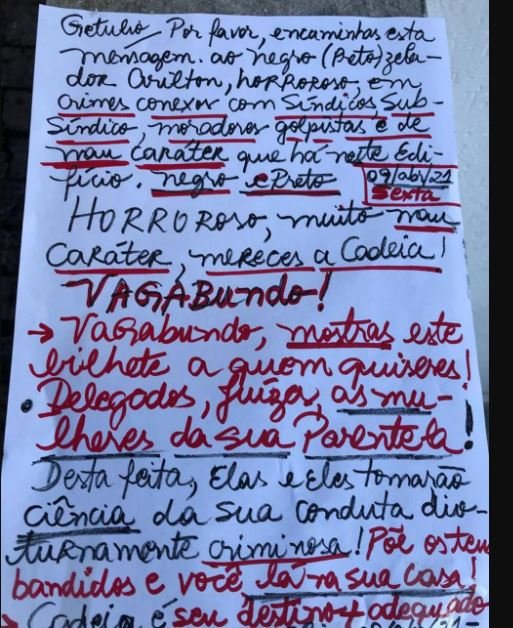 Getulio Por favor, encaminhas esta
mensagem. ao negro (Preto) zela-
dor Arilton, horroroso, em
crimes conexos com Síndicos, Sub-
Síndico, moradores golpistas e de
mau caráter que há neste Edi-
fício. negro e Preto 09/abr/21
Sexta
HORROROSO, muito mau
Caráter, mereces a Cadeia!
VAGABundo!
→ Vagabundo, mostras este
bilhete a quem quiseres!
• Delegados, Juíza, as mu-
lheres da sua Parentela!
Desta feita, Elas e Eles tomarão
ciência da sua conduta diu-
turnamente criminosa! Põe os teus
bandidos e você lá na sua casa!
→ Cadeia é seu destino + adequado